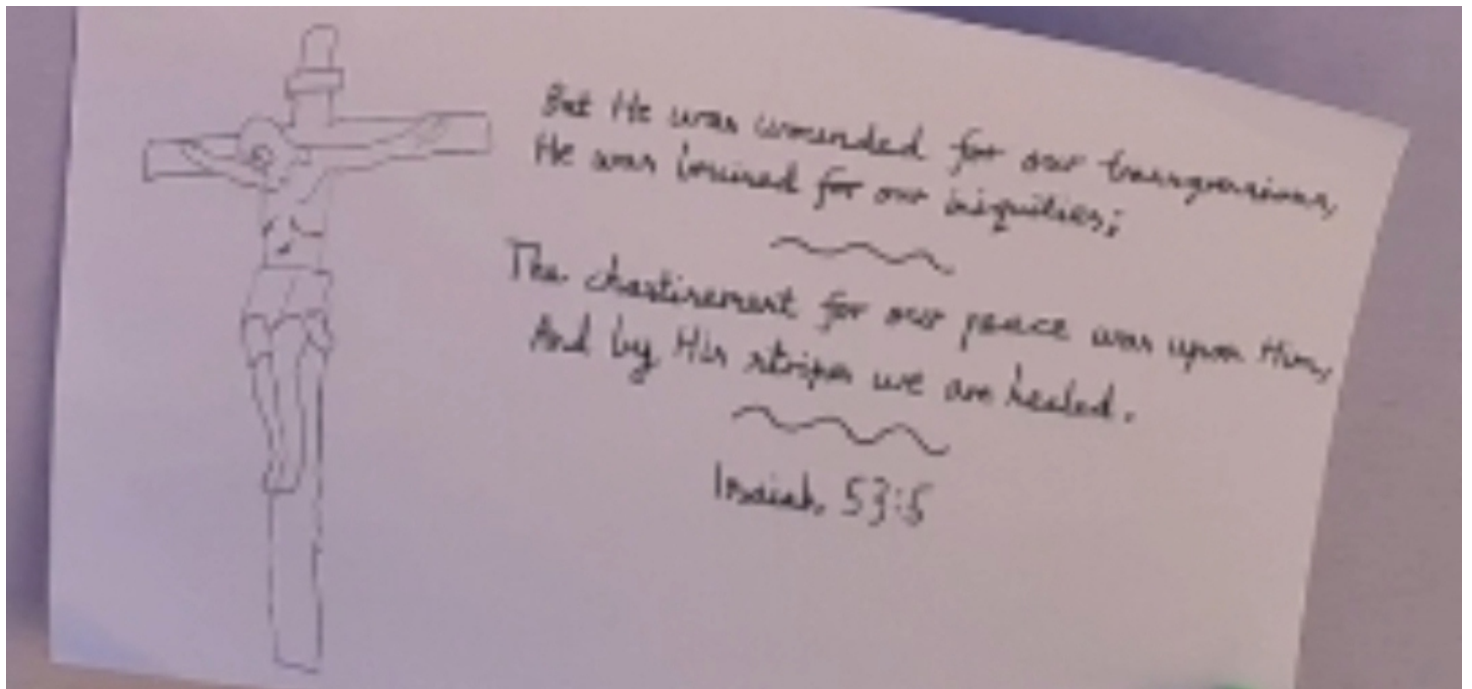 But He was wounded for our transgressions,
He was bruised for our iniquities;
The chastisement for our peace was upon Him,
And by His stripes we are healed.
Isaiah, 53:5